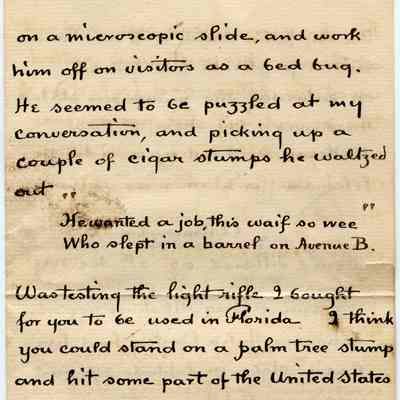 on a microscopic slide, and work
him off on visitors as a bed bug.
He seemed to be puzzled at my
conversation, and picking up a
couple of cigar stumps he waltzed
out
"He wanted a job, this waif so wee"
Who slept in a barrel on Avenue B.
Was testing the light rifle I bought
for you to be used in Florida I think
you could stand on a palm tree stump
and hit some part of the United States